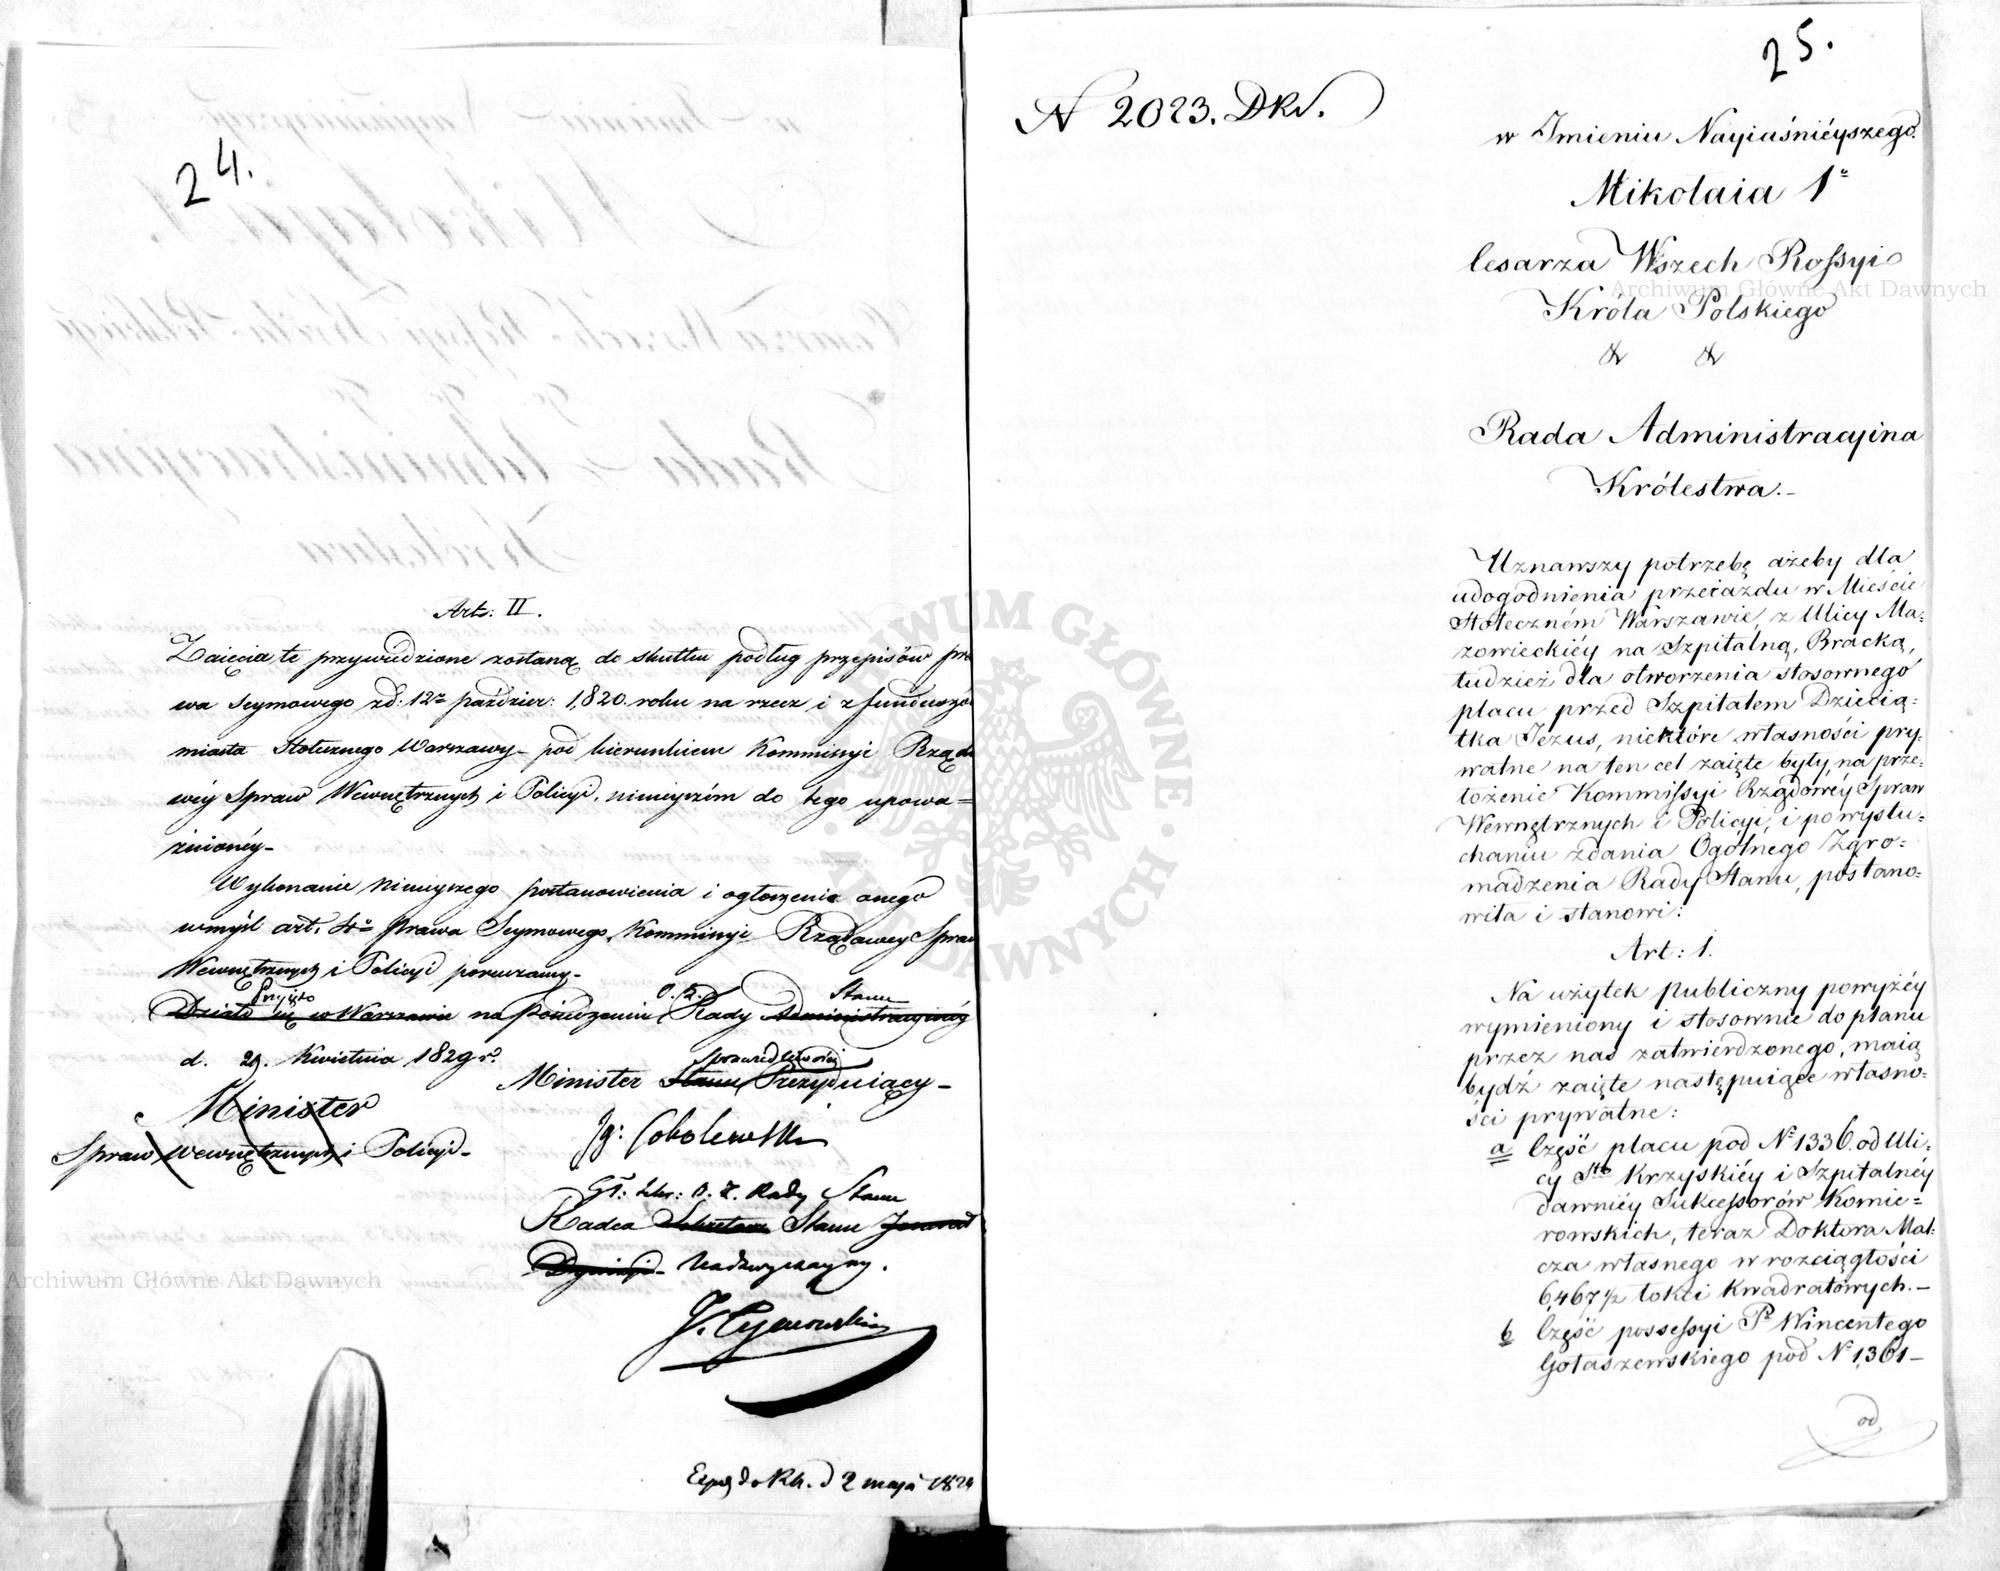 24.
Art: II.
Zaięcia te przywiedzione zostaną do skutku podług przepisów pra
wa Seymowego zd: 12º paździer: 1,820. roku na rzecz i z funduszów
miasta Stołecznego Warszawy pod kierunkiem Kommissyi Rządo
wéy Spraw Wewnętrznych i Policyi, ninieyszém do tego upowa=
żnionéy.
Wykonanie ninieyszego postanowienia i ogłoszenie onego
w myśl art. 4º prawa Seymowego, Kommissyi Rządowey Spraw
Wewnętrznych i Policyi poruczamy.
Przyięto O. Z. Stanu
Działo się w Warszawie na Posiedzeniu Rady Administracyinéy
d. 29. Kwietnia 1829 r.
Sprawiedliwości
Minister Stanu Prezyduiący
Minister
Spraw Wewnętrznych i Policyi
Ig: Sobolewski
O. Z. Rady Stanu
Radca Sekretarz Stanu
Nadzwyczayny.
d 2 maja 1829
25.
N 2023. DKr.
w Imieniu Nayiaśnieyszego
Mikołaia 1º
Cesarza Wszech Rossyi
Króla Polskiego
& &
Rada Administracyina
Królestwa.
Uznawszy potrzebę ażeby dla
udogodnienia przeiazdu w Mieście
Stołeczném Warszawie, z Ulicy Ma=
zowieckiéy na Szpitalną, Bracką,
tudzież dla otworzenia stosownego
placu przed Szpitalem Dziecią=
tka Iezus, niektóre własności pry=
watne na ten cel zaięte były, na prze=
łożenie Kommissyi Rządowéy Spraw
Wewnętrznych i Policyi, i po wysłu=
chaniu zdania Ogólnego Zgro=
madzenia Rady Stanu, postano=
wiła i stanowi:
Art: 1.
Na użytek publiczny powyżéy
wymieniony i stosownie do planu
przez nas zatwierdzonego, maią
bydź zaięte następuiące własno=
ści prywatne:
a Część placu pod Nº 1336. od Uli=
cy Sto Krzyskiéy i Szpitalnéy
dawniéy Sukcessorów Komie=
rowskich, teraz Doktora Mal=
cza własnego w rozciągłości
6,467 1/2 łokci kwadratowych.
b Część possessyi Pa Wincentego
Gołaszewskiego pod Nº 1,361
od
Archiwum Główne Akt Dawnych
Archiwum Główne Akt Dawnych
ARCHIWUM GŁÓWNE · AKT DAWNYCH ·